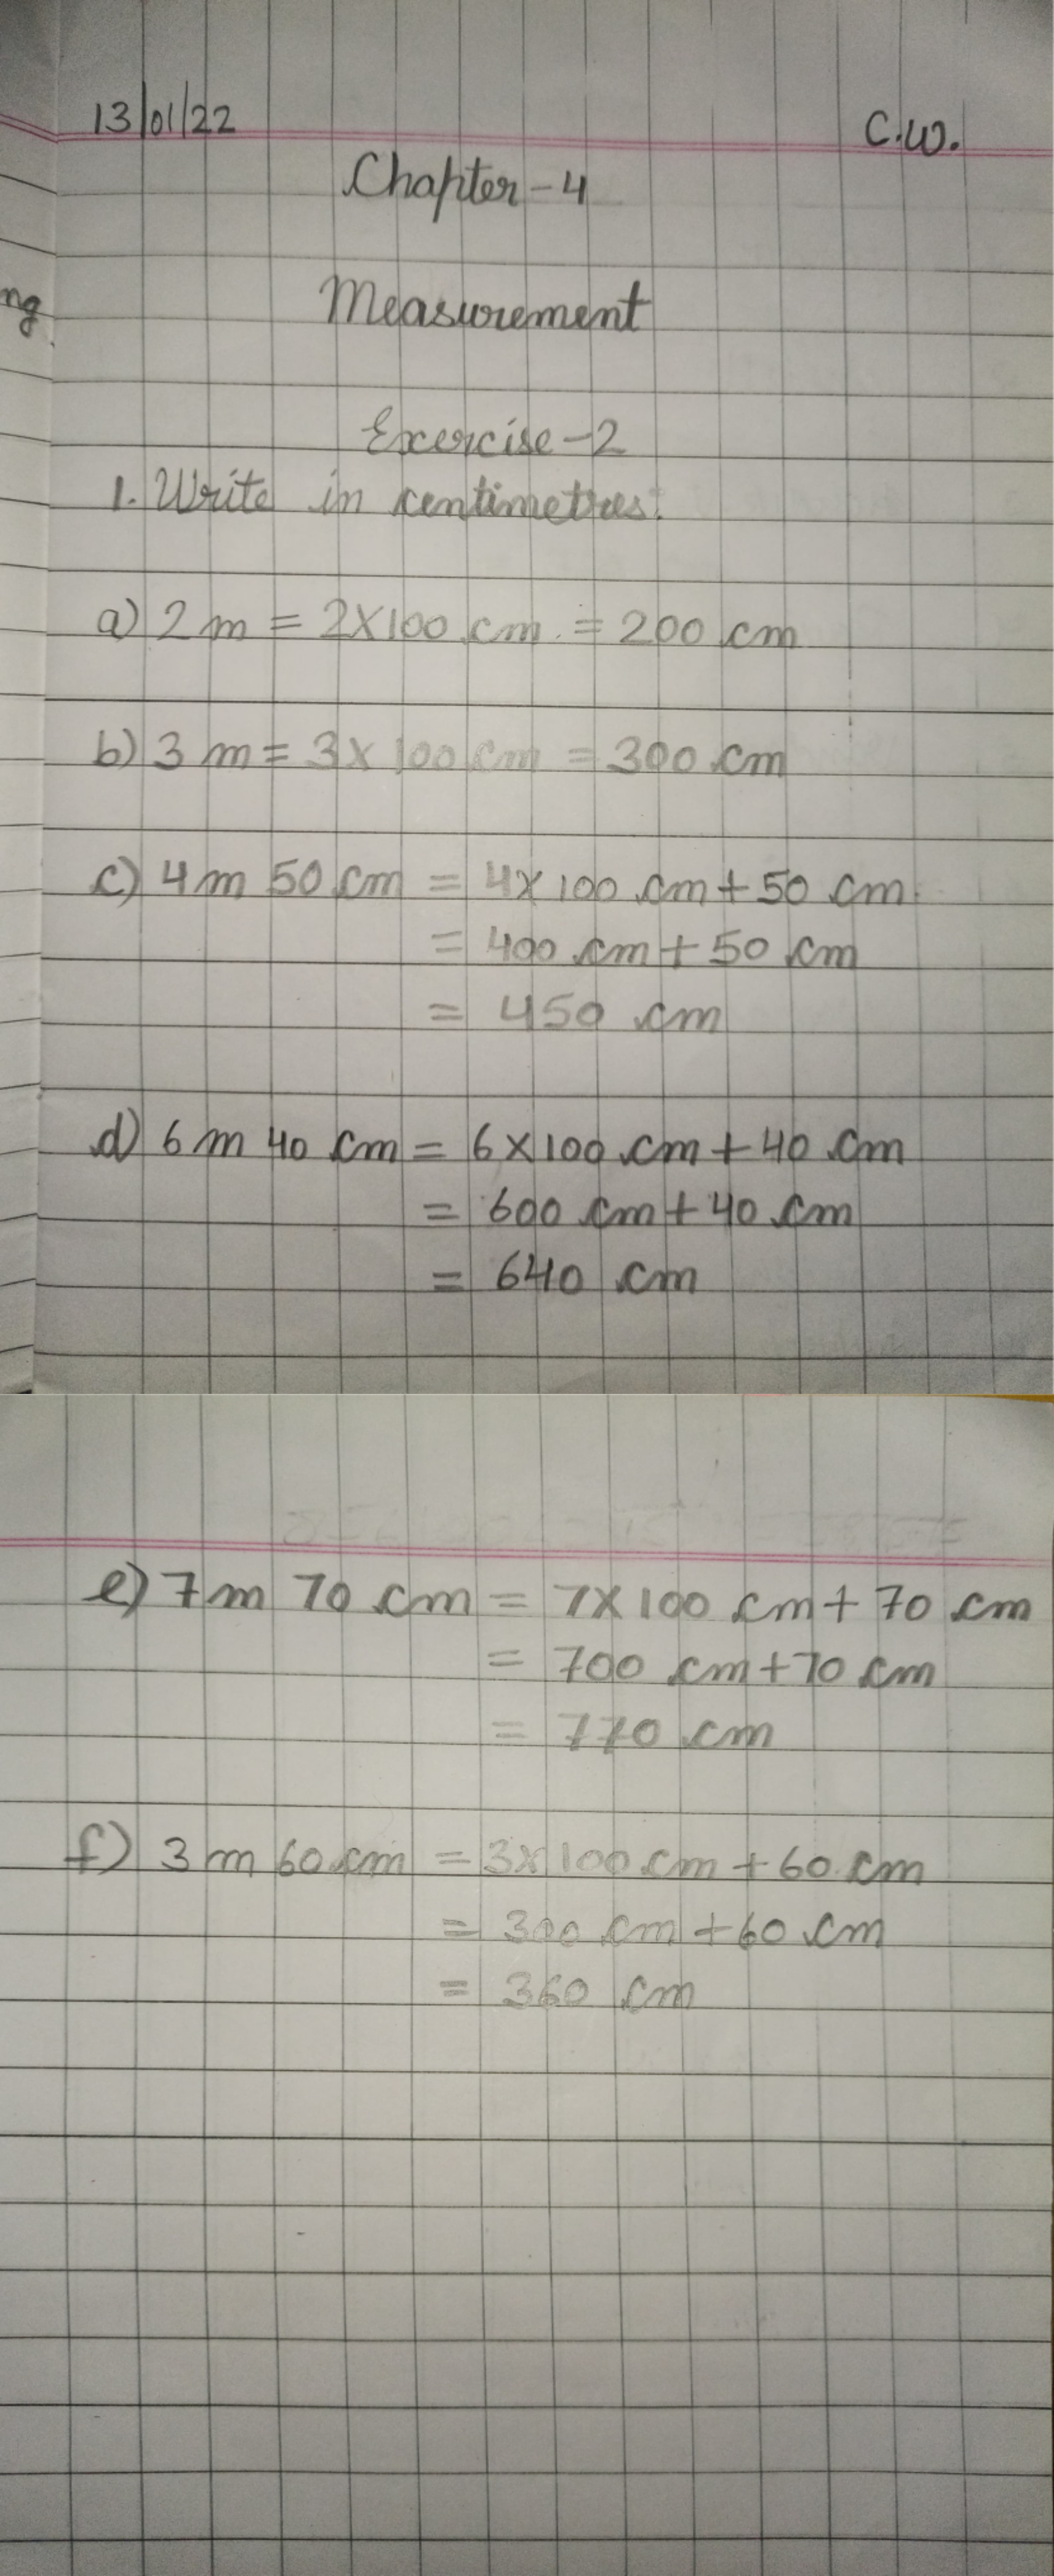 13/01/22 C.W.
Chapter-4
ng
Measurement
Exercise-2
1. Write in centimetres:
a) 2 m = 2×100 cm = 200 cm
b) 3 m = 3×100 cm = 300 cm
c) 4 m 50 cm = 4×100 cm + 50 cm
= 400 cm + 50 cm
= 450 cm
d) 6 m 40 cm = 6×100 cm + 40 cm
= 600 cm + 40 cm
= 640 cm
e) 7 m 70 cm = 7×100 cm + 70 cm
= 700 cm + 70 cm
= 770 cm
f) 3 m 60 cm = 3×100 cm + 60 cm
= 300 cm + 60 cm
= 360 cm